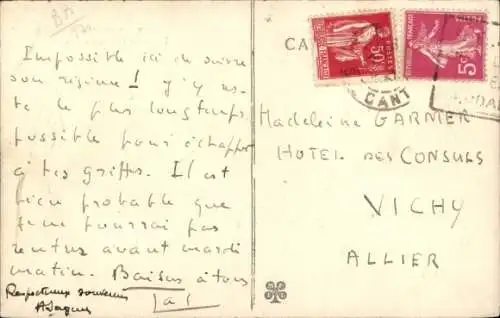 Impossible ici de suivre
son régime ! j'y res-
te le plus longtemps
possible pour échapper
à tes griffes. Il est
bien probable que
je ne pourrai pas
rentrer avant mardi
matin. Baisers à tous
Jac
Respectueux souvenirs
A Jacques
CA
POSTES
50c
RÉPUBLIQUE FRANÇAISE
5c
CANT
Madeleine GARNIER
HOTEL DES CONSULS
VICHY
ALLIER